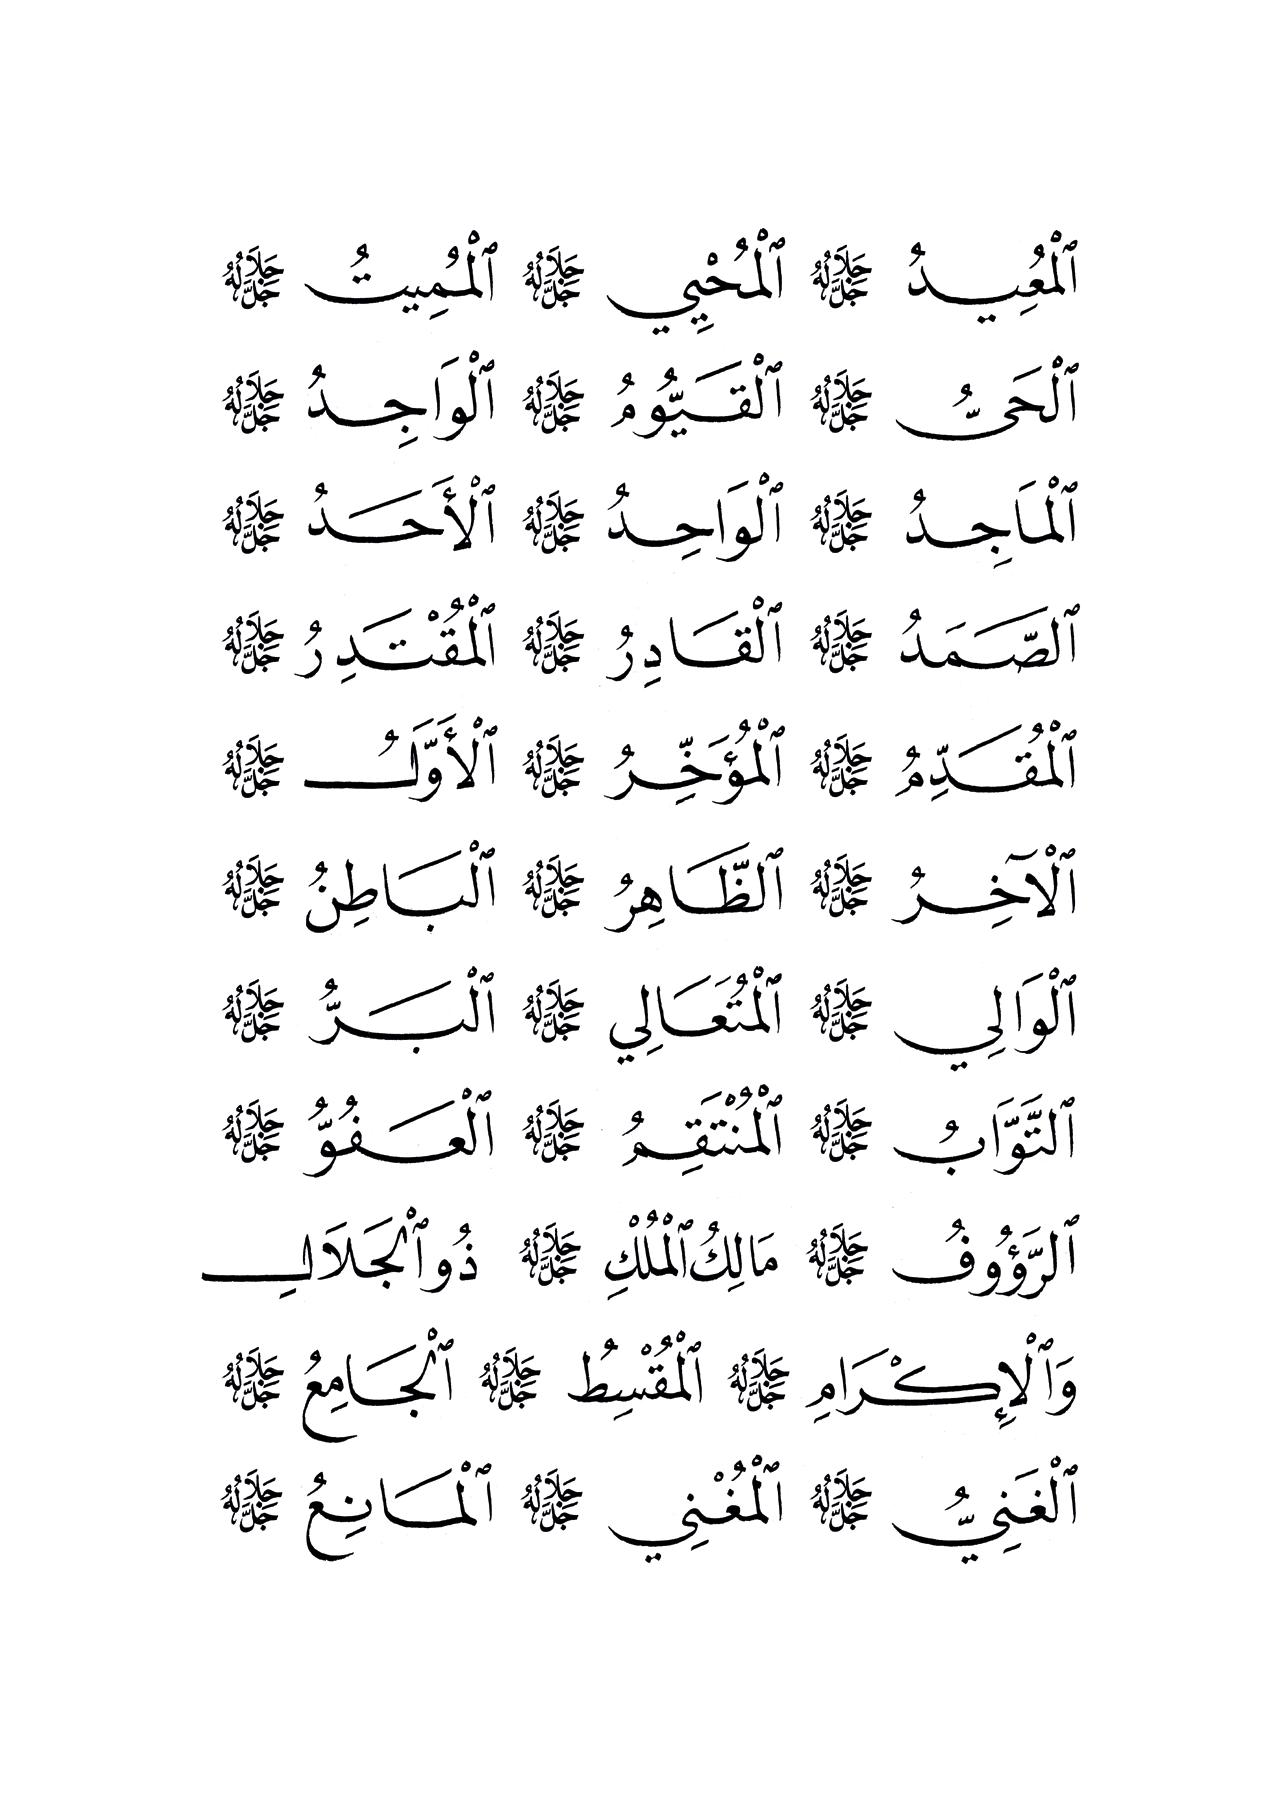 ٱلْمُعِيدُ جَلَّ جَلَالُهُ ٱلْمُحْيِي جَلَّ جَلَالُهُ ٱلْمُمِيتُ جَلَّ جَلَالُهُ
ٱلْحَىُّ جَلَّ جَلَالُهُ ٱلْقَيُّومُ جَلَّ جَلَالُهُ ٱلْوَاجِدُ جَلَّ جَلَالُهُ
ٱلْمَاجِدُ جَلَّ جَلَالُهُ ٱلْوَاحِدُ جَلَّ جَلَالُهُ ٱلْأَحَدُ جَلَّ جَلَالُهُ
ٱلصَّمَدُ جَلَّ جَلَالُهُ ٱلْقَادِرُ جَلَّ جَلَالُهُ ٱلْمُقْتَدِرُ جَلَّ جَلَالُهُ
ٱلْمُقَدِّمُ جَلَّ جَلَالُهُ ٱلْمُؤَخِّرُ جَلَّ جَلَالُهُ ٱلْأَوَّلُ جَلَّ جَلَالُهُ
ٱلْآخِرُ جَلَّ جَلَالُهُ ٱلظَّاهِرُ جَلَّ جَلَالُهُ ٱلْبَاطِنُ جَلَّ جَلَالُهُ
ٱلْوَالِي جَلَّ جَلَالُهُ ٱلْمُتَعَالِي جَلَّ جَلَالُهُ ٱلْبَرُّ جَلَّ جَلَالُهُ
ٱلتَّوَّابُ جَلَّ جَلَالُهُ ٱلْمُنْتَقِمُ جَلَّ جَلَالُهُ ٱلْعَفُوُّ جَلَّ جَلَالُهُ
ٱلرَّؤُوفُ جَلَّ جَلَالُهُ مَالِكُ ٱلْمُلْكِ جَلَّ جَلَالُهُ ذُو ٱلْجَلَالِ
وَٱلْإِكْرَامِ جَلَّ جَلَالُهُ ٱلْمُقْسِطُ جَلَّ جَلَالُهُ ٱلْجَامِعُ جَلَّ جَلَالُهُ
ٱلْغَنِيُّ جَلَّ جَلَالُهُ ٱلْمُغْنِي جَلَّ جَلَالُهُ ٱلْمَانِعُ جَلَّ جَلَالُهُ